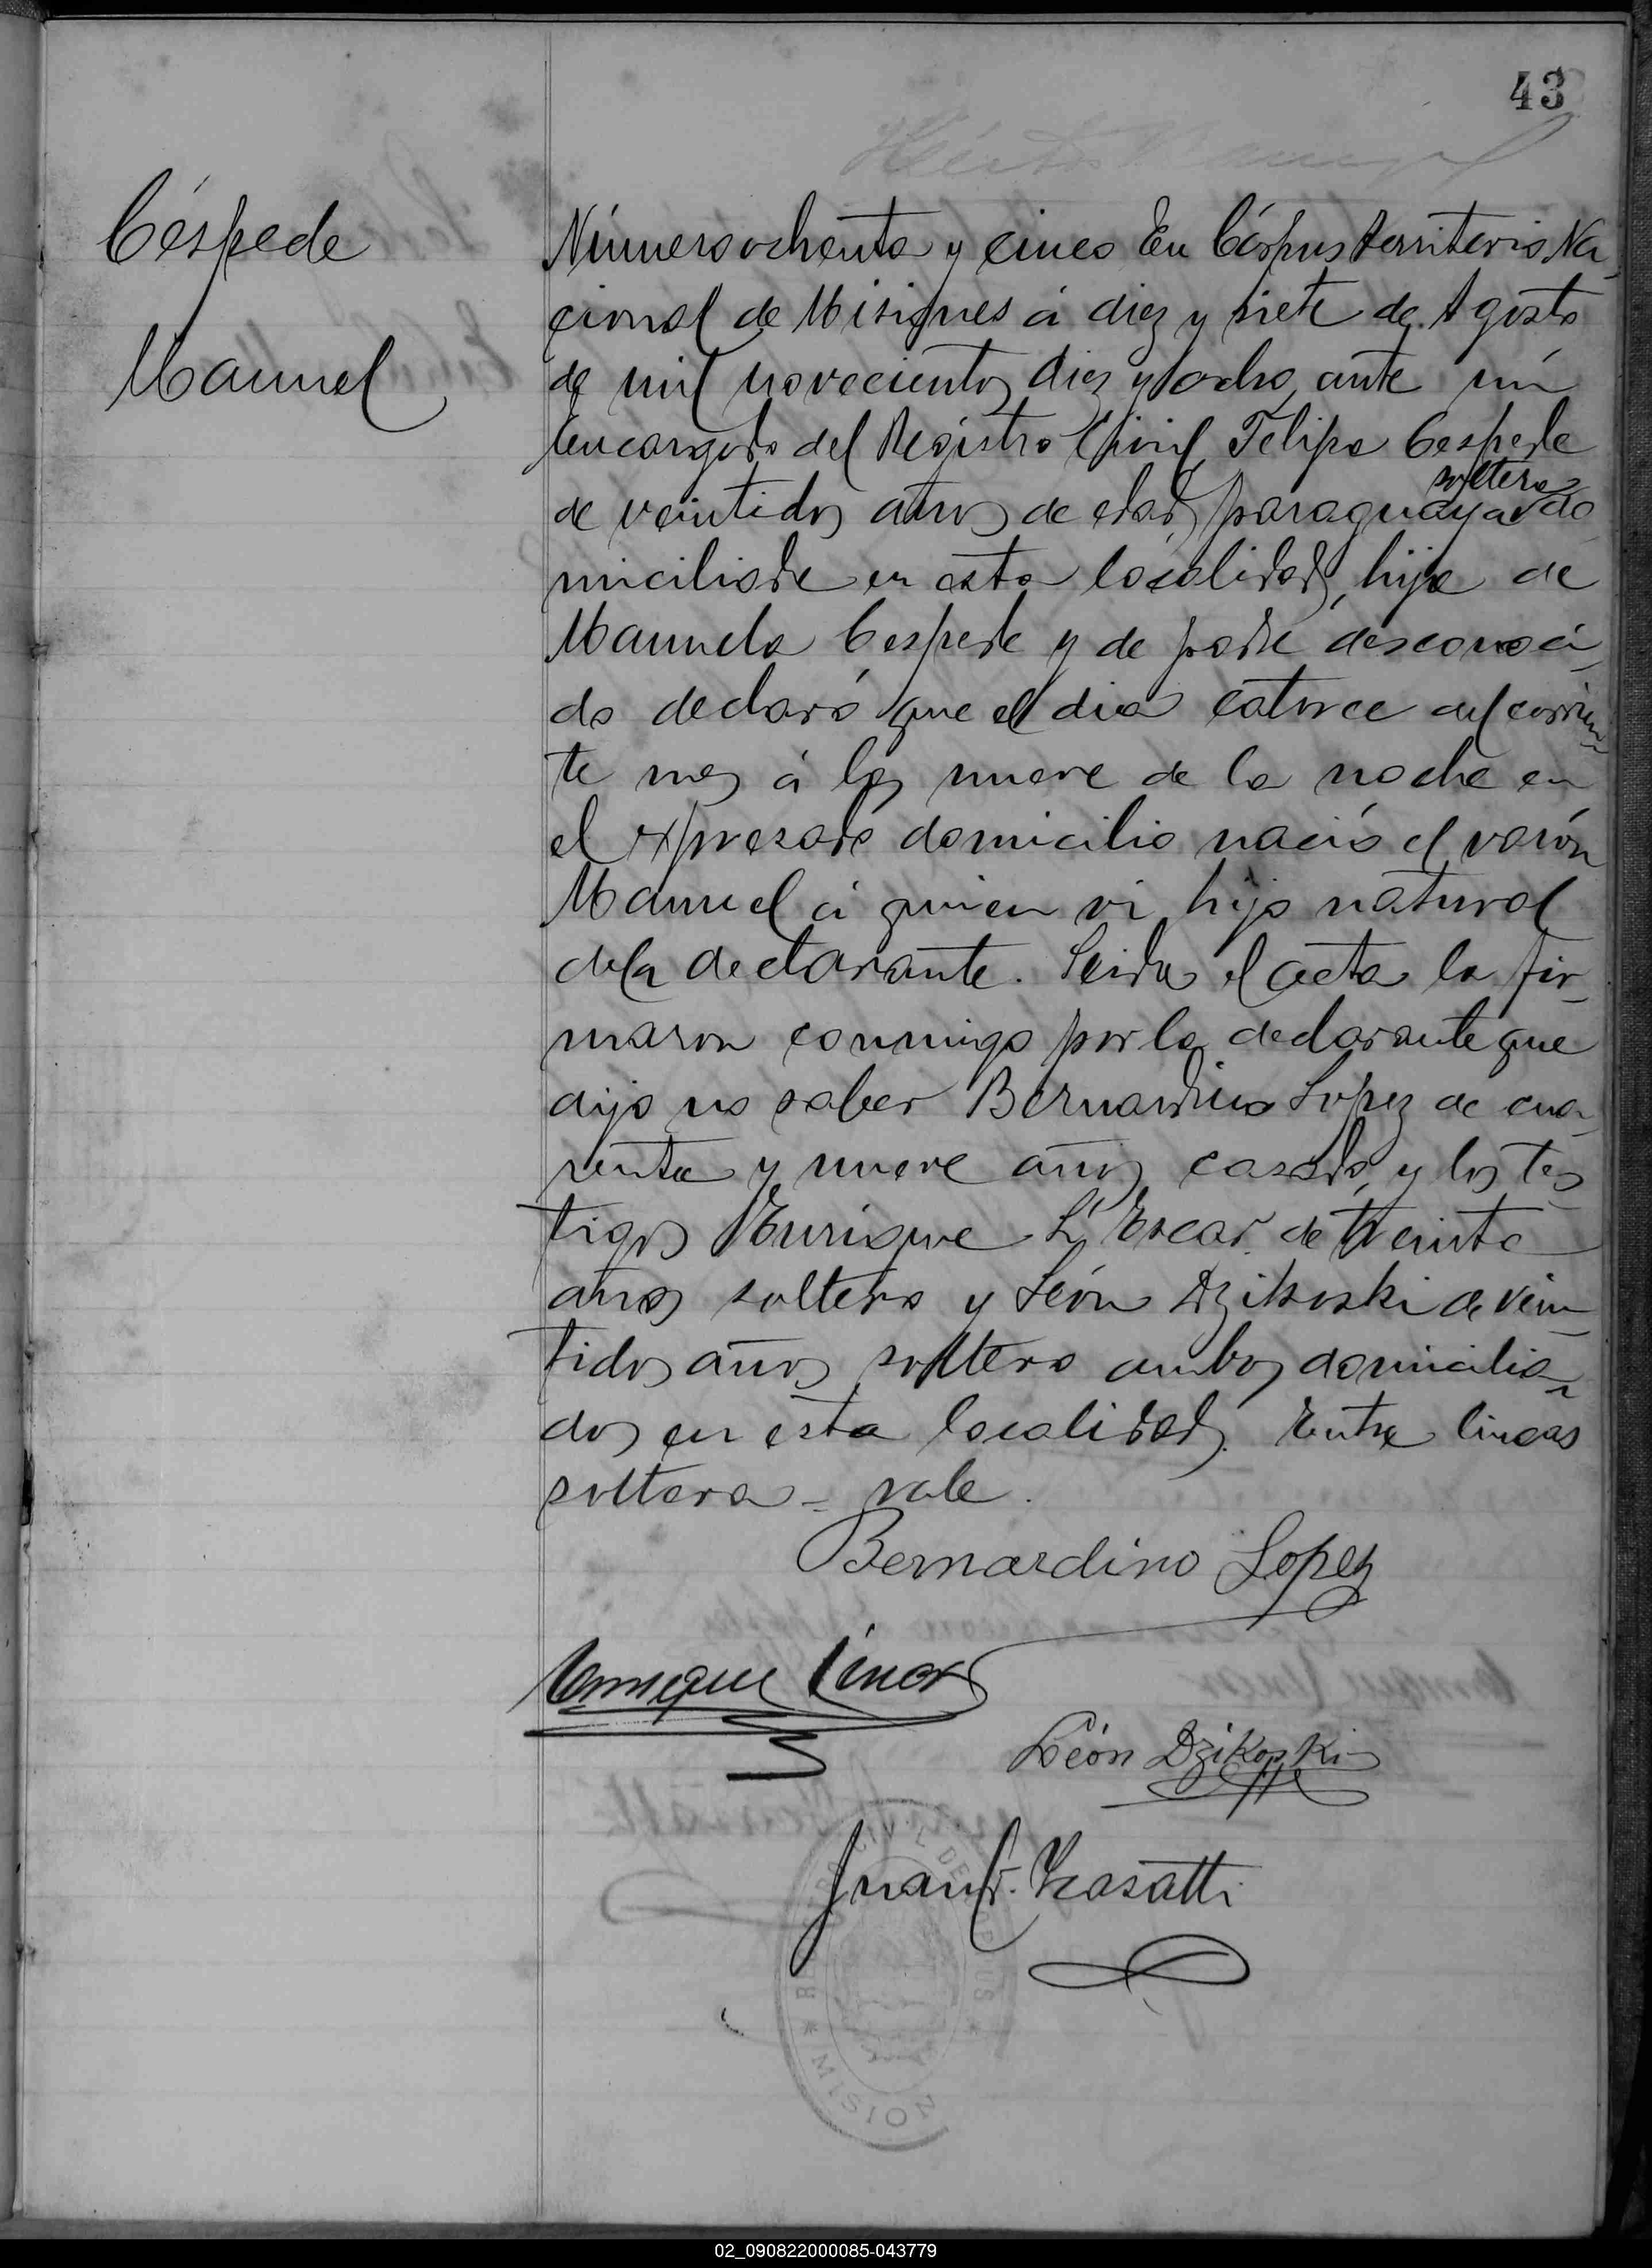 43
Céspede
Manuel
Número ochenta y cinco En Córpus territorio Na-
cional de Misiones á diez y siete de Agosto
de mil novecientos diez y ocho, ante mí
Encargado del Registro Civil, Felipa Cespede
de veintidos años de edad, paraguaya soltera do
miciliada en esta localidad, hija de
Manuela Cespede y de padre desconoci-
do declaró que el dia catorce del corrien-
te mes á las nueve de la noche en
el expresado domicilio nació el varón
Manuel á quien vi, hijo natural
de la declarante. Leida el acta la fir-
maron conmigo por la declarante que
dijo no saber Bernardino Lopez de cua-
renta y nueve años casado, y los tes-
tigos Enrique de treinta
años soltero y León Dzikoski de vein-
tidos años soltero ambos domicilia-
dos en esta localidad. Entre lineas
soltera - vale.
Bernardino Lopez
Enrique
León Dzikoski
Juan Kasatti
MISION
02_090822000085-043779